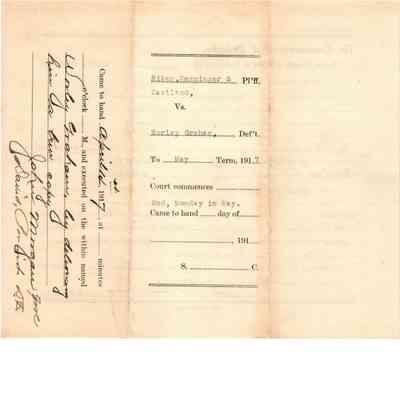 Came to hand April 4 1917 at minutes
o'clock M., and executed on the within named
Worley Graham, by delivering
him a true copy
John S. Morgan
Piker, &
Eastland, Pl'ff,
Vs.
Worley Graham, Def't.
To May Term, 1917.
Court commences
2nd, Monday in May.
Came to hand day of
191
S. C.